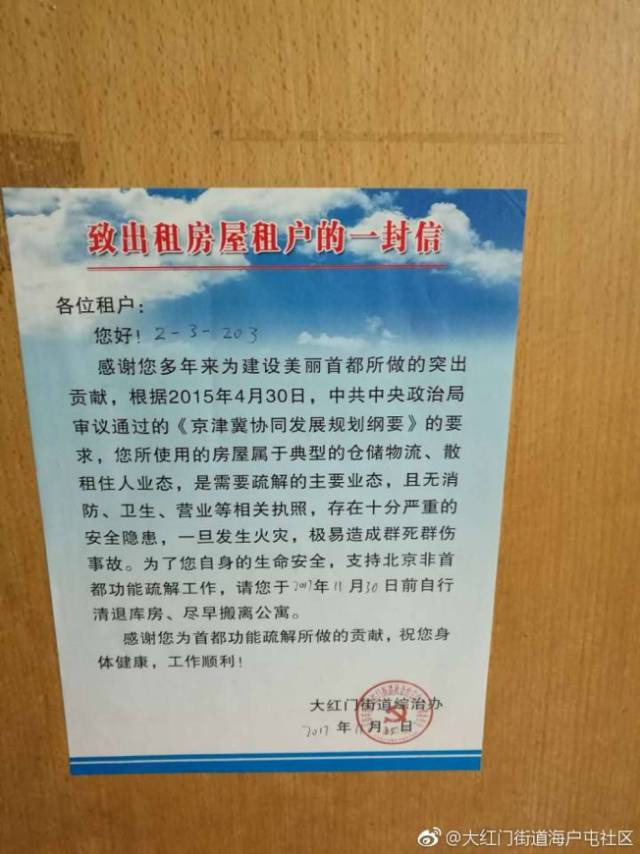 致出租房屋租户的一封信
各位租户：
您好！2-3-203
感谢您多年来为建设美丽首都所做的突出
贡献，根据2015年4月30日，中共中央政治局
审议通过的《京津冀协同发展规划纲要》的要
求，您所使用的房屋属于典型的仓储物流、散
租住人业态，是需要疏解的主要业态，且无消
防、卫生、营业等相关执照，存在十分严重的
安全隐患，一旦发生火灾，极易造成群死群伤
事故。为了您自身的生命安全，支持北京非首
都功能疏解工作，请您于2017年11月30日前自行
清退库房、尽早搬离公寓。
感谢您为首都功能疏解所做的贡献，祝您身
体健康，工作顺利！
大红门街道综治办
2017年11月 日
@大红门街道海户屯社区